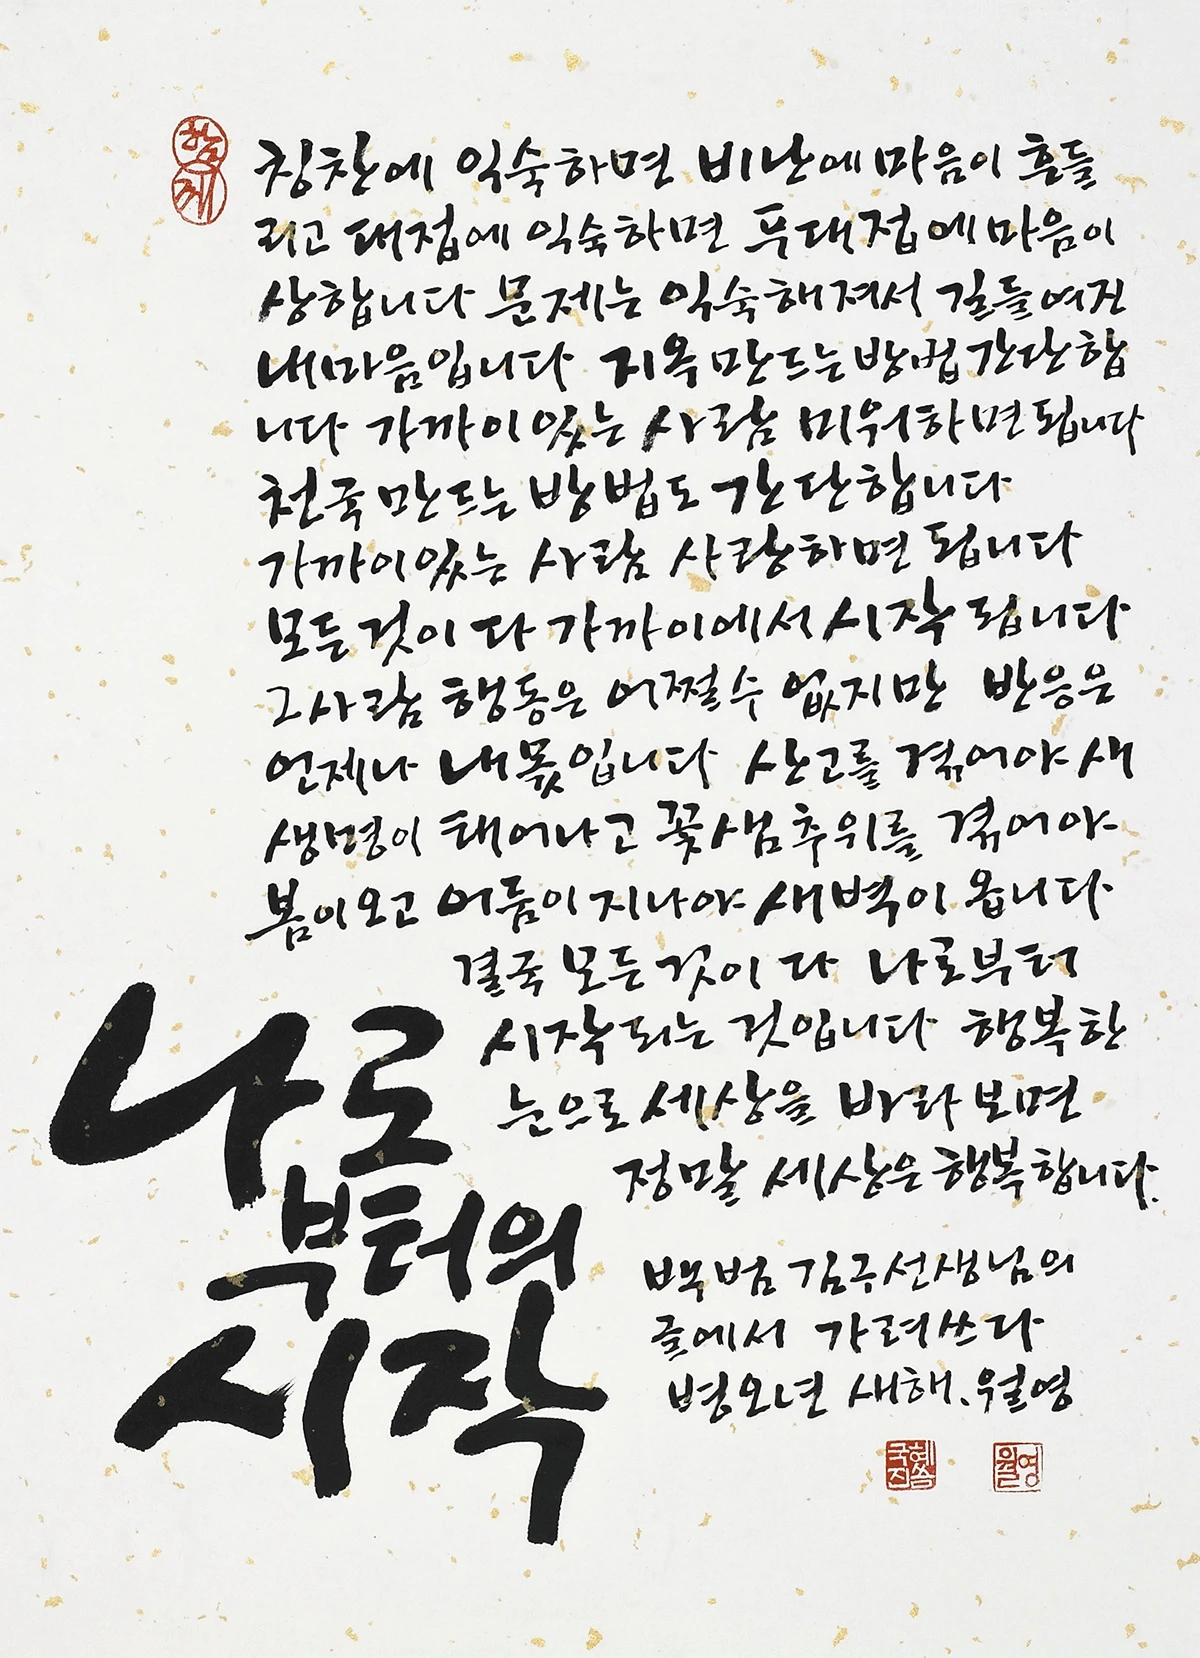 함께
칭찬에 익숙하면 비난에 마음이 흔들
리고 대접에 익숙하면 푸대접에 마음이
상합니다 문제는 익숙해져서 길들여진
내마음입니다 지옥 만드는 방법 간단합
니다 가까이 있는 사람 미워하면 됩니다
천국 만드는 방법도 간단합니다
가까이 있는 사람 사랑하면 됩니다
모든 것이 다 가까이에서 시작 됩니다
그사람 행동은 어쩔수 없지만 반응은
언제나 내몫입니다 산고를 겪어야 새
생명이 태어나고 꽃샘추위를 겪어야
봄이오고 어둠이 지나야 새벽이 옵니다
결국 모든 것이 다 나로부터
시작되는 것입니다 행복한
눈으로 세상을 바라보면
정말 세상은 행복합니다.
나로
부터의
시작
백범 김구선생님의
글에서 가려쓰다
병오년 새해. 월영
월영